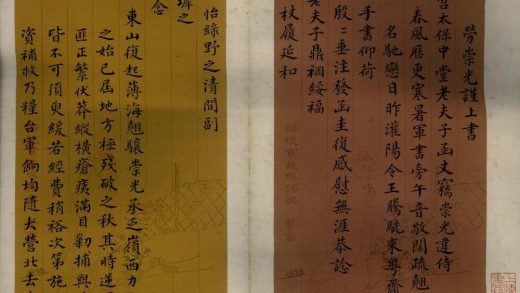 勞崇光謹上書
宮太保中堂老夫子函丈竊崇光違侍
春風歷更寒暑軍書旁午音敬闊疏翹
名馳戀日昨灌陽令王騰驍來粵齎
手書仰荷
殷二垂注發函圭復感慰無涯恭諗
老夫子鼎祻綏福
杖履延和
怡綠野之清閒副
墀之
念
東山復起薄海翹驤崇光承乏嶺西力
之始已屆地方極殘破之秋其時逆
匪正繁伏莽縱橫瘡痍滿目勦捕與
皆不可須臾緩若經費稍裕次第施
資補救乃糧台軍餉均隨大營北去